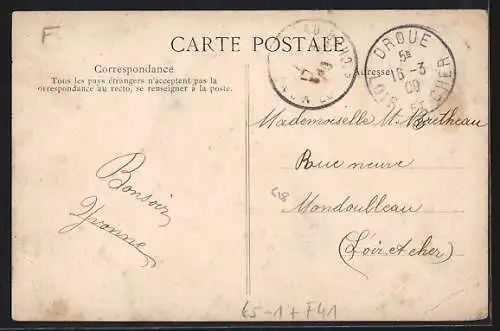 F
CARTE POSTALE
Correspondance
Tous les pays étrangers n'acceptent pas la
correspondance au recto, se renseigner à la poste.
Adresse
DROUE
5E
16-3
09
LOIR ET CHER
Mademoiselle M. Bretheau
Rue neuve
Mondoubleau
(Loir et cher)
Bonsoir
Yvonne